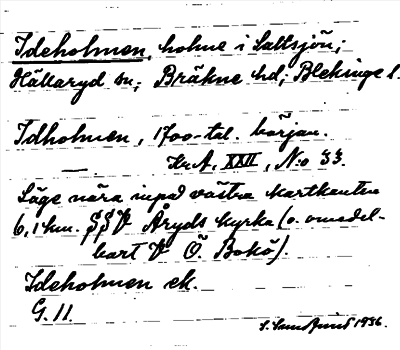 Ideholmen, holme i Saltsjön;
Hällaryd sn; Bräkne hd; Blekinge l.
Idholmen, 1700-tal. början.
— Kr.A. XXII, N:o 33.
Läge nära inpå västra kartkanten
6,1 km. SSV Åryds kyrka (o. omedel-
bart V Ö. Bokö).
Ideholmen ek.
G. 11.
1936.